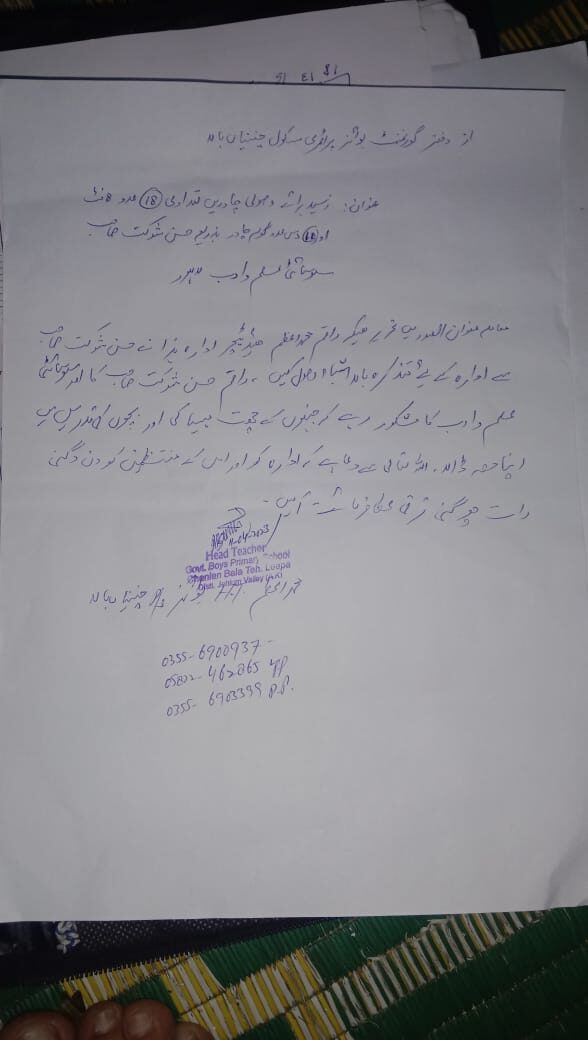 18 13 16
از دفتر گورنمنٹ بوائز پرائمری سکول چنیاں بالا
عنوان: رسید برائے وصولی چادریں تعدادی 18 عدد 8 فٹ
اور دس عدد گولہ چادر بذریعے حسن شوکت صاحب
سوسائٹی علم و ادب
معاملہ عنوان الصدر میں تحریر ہیکہ راقم محمد اعظم ہیڈ ٹیچر ادارہ ہذا نے حسن شوکت صاحب
سے ادارہ کے لیے تذکرہ بالا اشیاء وصول کیں۔ راقم حسن شوکت صاحب کا اور سوسائٹی
علم و ادب کا مشکور رہے گا جنہوں نے چھت مہیا کی اور بچوں کی تدریس میں
اپنا حصہ ڈالا۔ اللہ تعالی سے دعا ہے کہ ادارہ کو اور اس کے منتظمین کو دن دگنی
رات چوگنی ترقی عطا فرمائے۔ آمین۔
Head Teacher
Govt. Boys Primary School
Chanian Bala Teh. Leepa
Distt. Jehlum Valley (AK)
محمد اعظم بوائز چنیاں بالا
0355-6900937-
05822-462865 PP
0355-6903399 P.P.